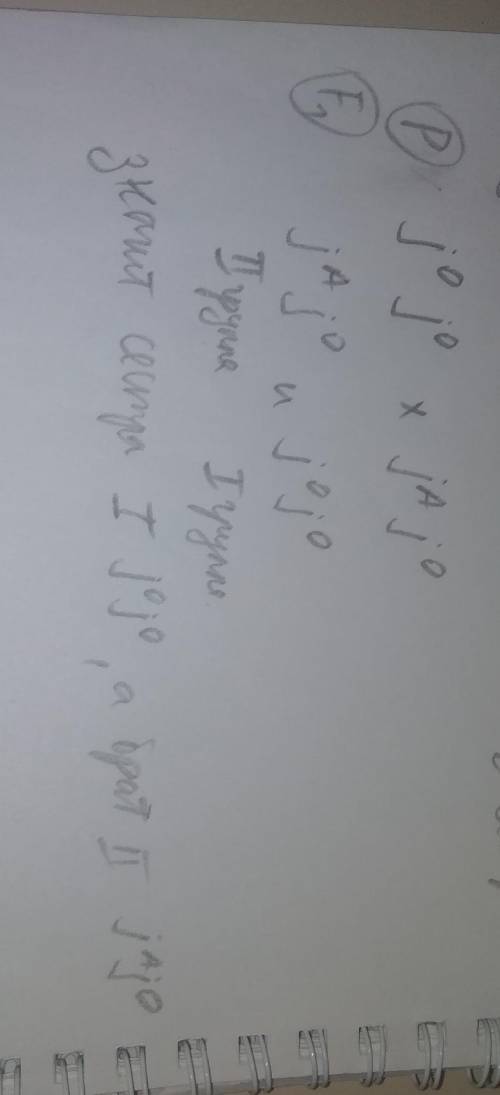 P j⁰ j⁰ x jᴬ j⁰
F₁ jᴬ j⁰ и j⁰ j⁰
II группа I группа
значит сестра I j⁰j⁰, а брат II jᴬj⁰